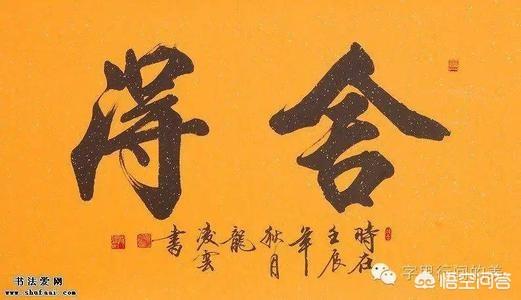 舍得
時在
壬辰
年
秋月
龍
凌雲
書
书法爱网
www.shufaai.com
字里行间的美
悟空问答